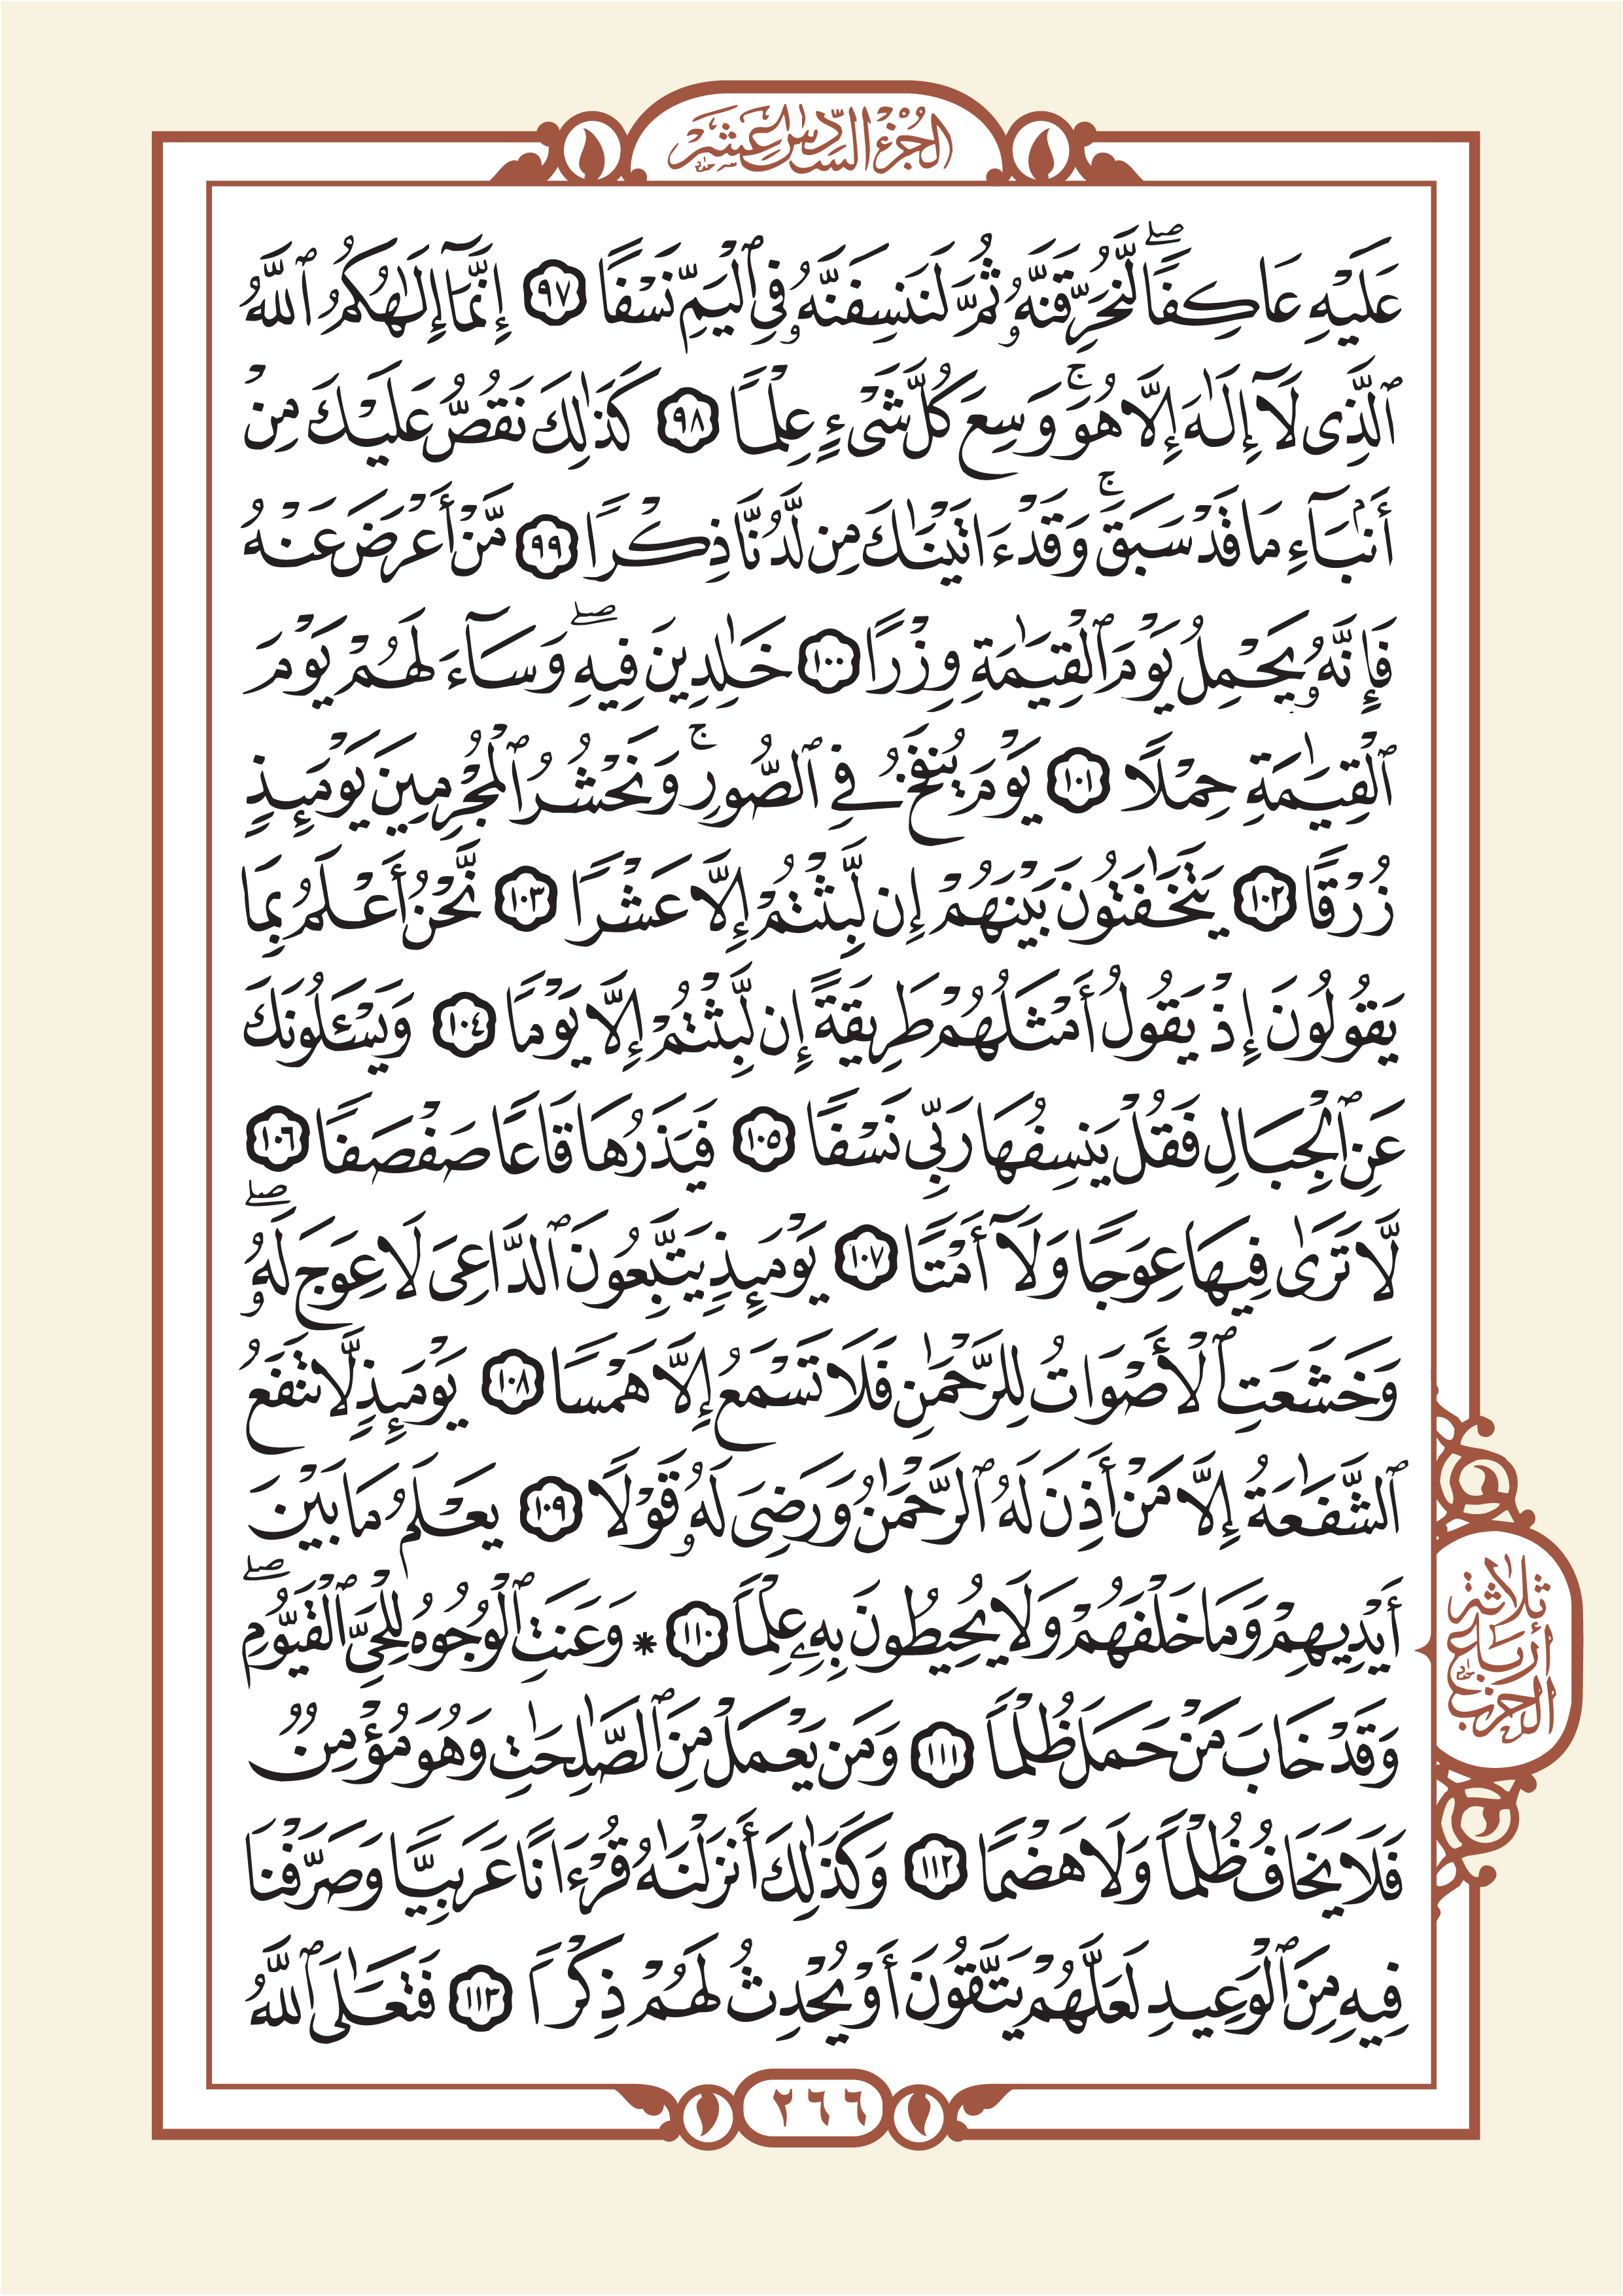 الجُزْءُ السَّادِسَ عَشَرَ
عَلَيْهِ عَاكِفًاۖ لَّنُحَرِّقَنَّهُۥ ثُمَّ لَنَنسِفَنَّهُۥ فِى ٱلْيَمِّ نَسْفًا ٩٧ إِنَّمَآ إِلَـٰهُكُمُ ٱللَّهُ
ٱلَّذِى لَآ إِلَـٰهَ إِلَّا هُوَۚ وَسِعَ كُلَّ شَىْءٍ عِلْمًا ٩٨ كَذَٰلِكَ نَقُصُّ عَلَيْكَ مِنْ
أَنۢبَآءِ مَا قَدْ سَبَقَۚ وَقَدْ ءَاتَيْنَـٰكَ مِن لَّدُنَّا ذِكْرًا ٩٩ مَّنْ أَعْرَضَ عَنْهُ
فَإِنَّهُۥ يَحْمِلُ يَوْمَ ٱلْقِيَـٰمَةِ وِزْرًا ١٠٠ خَـٰلِدِينَ فِيهِۖ وَسَآءَ لَهُمْ يَوْمَ
ٱلْقِيَـٰمَةِ حِمْلًا ١٠١ يَوْمَ يُنفَخُ فِى ٱلصُّورِۚ وَنَحْشُرُ ٱلْمُجْرِمِينَ يَوْمَئِذٍ
زُرْقًا ١٠٢ يَتَخَـٰفَتُونَ بَيْنَهُمْ إِن لَّبِثْتُمْ إِلَّا عَشْرًا ١٠٣ نَّحْنُ أَعْلَمُ بِمَا
يَقُولُونَ إِذْ يَقُولُ أَمْثَلُهُمْ طَرِيقَةً إِن لَّبِثْتُمْ إِلَّا يَوْمًا ١٠٤ وَيَسْـَٔلُونَكَ
عَنِ ٱلْجِبَالِ فَقُلْ يَنسِفُهَا رَبِّى نَسْفًا ١٠٥ فَيَذَرُهَا قَاعًا صَفْصَفًا ١٠٦
لَّا تَرَىٰ فِيهَا عِوَجًا وَلَآ أَمْتًا ١٠٧ يَوْمَئِذٍ يَتَّبِعُونَ ٱلدَّاعِىَ لَا عِوَجَ لَهُۥۖ
وَخَشَعَتِ ٱلْأَصْوَاتُ لِلرَّحْمَـٰنِ فَلَا تَسْمَعُ إِلَّا هَمْسًا ١٠٨ يَوْمَئِذٍ لَّا تَنفَعُ
ٱلشَّفَـٰعَةُ إِلَّا مَنْ أَذِنَ لَهُ ٱلرَّحْمَـٰنُ وَرَضِىَ لَهُۥ قَوْلًا ١٠٩ يَعْلَمُ مَا بَيْنَ
أَيْدِيهِمْ وَمَا خَلْفَهُمْ وَلَا يُحِيطُونَ بِهِۦ عِلْمًا ١١٠ * وَعَنَتِ ٱلْوُجُوهُ لِلْحَىِّ ٱلْقَيُّومِۖ
وَقَدْ خَابَ مَنْ حَمَلَ ظُلْمًا ١١١ وَمَن يَعْمَلْ مِنَ ٱلصَّـٰلِحَـٰتِ وَهُوَ مُؤْمِنٌ
فَلَا يَخَافُ ظُلْمًا وَلَا هَضْمًا ١١٢ وَكَذَٰلِكَ أَنزَلْنَـٰهُ قُرْءَانًا عَرَبِيًّا وَصَرَّفْنَا
فِيهِ مِنَ ٱلْوَعِيدِ لَعَلَّهُمْ يَتَّقُونَ أَوْ يُحْدِثُ لَهُمْ ذِكْرًا ١١٣ فَتَعَـٰلَى ٱللَّهُ
ثلاثة
أرباع
الحزب
٢٦٦